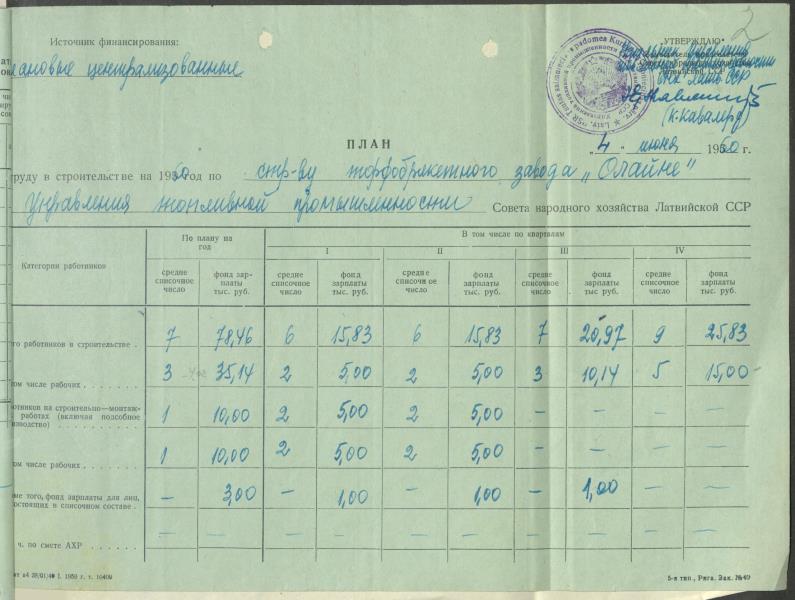 Источник финансирования:
ановые централизованные
„УТВЕРЖДАЮ“
СНХ Латв. ССР
(К. Кавалер)
ПЛАН
„4“ июня 1960 г.
труду в строительстве на 1960 год по стр-ву торфобрикетного завода „Олайне“
Управления топливной промышленности Совета народного хозяйства Латвийской ССР
Категории работников
По плану на год
В том числе по кварталам
I II III IV
средне списочное число фонд зар- платы тыс. руб. средне списочное число фонд зарплаты тыс. руб. средне списочное число фонд зарплаты тыс. руб. средне списочное число фонд зарплаты тыс. руб. средне списочное число фонд зарплаты тыс. руб.
го работников в строительстве . 7 78,46 6 15,83 6 15,83 7 20,97 9 25,83
том числе рабочих . . . . . . . 3 35,14 2 5,00 2 5,00 3 10,14 5 15,00
отников на строительно—монтаж-
работах (включая подсобное
изводство) . . . . . . . . . . 1 10,00 2 5,00 2 5,00 — — — —
том числе рабочих . . . . . . . 1 10,00 2 5,00 2 5,00 — — — —
ме того, фонд зарплаты для лиц,
состоящих в списочном составе . — 3,00 — 1,00 — 1,00 — 1,00 — —
ч. по смете АХР . . . . . . — — — — — — — — — —
5-я тип., Рига. Зак. №49